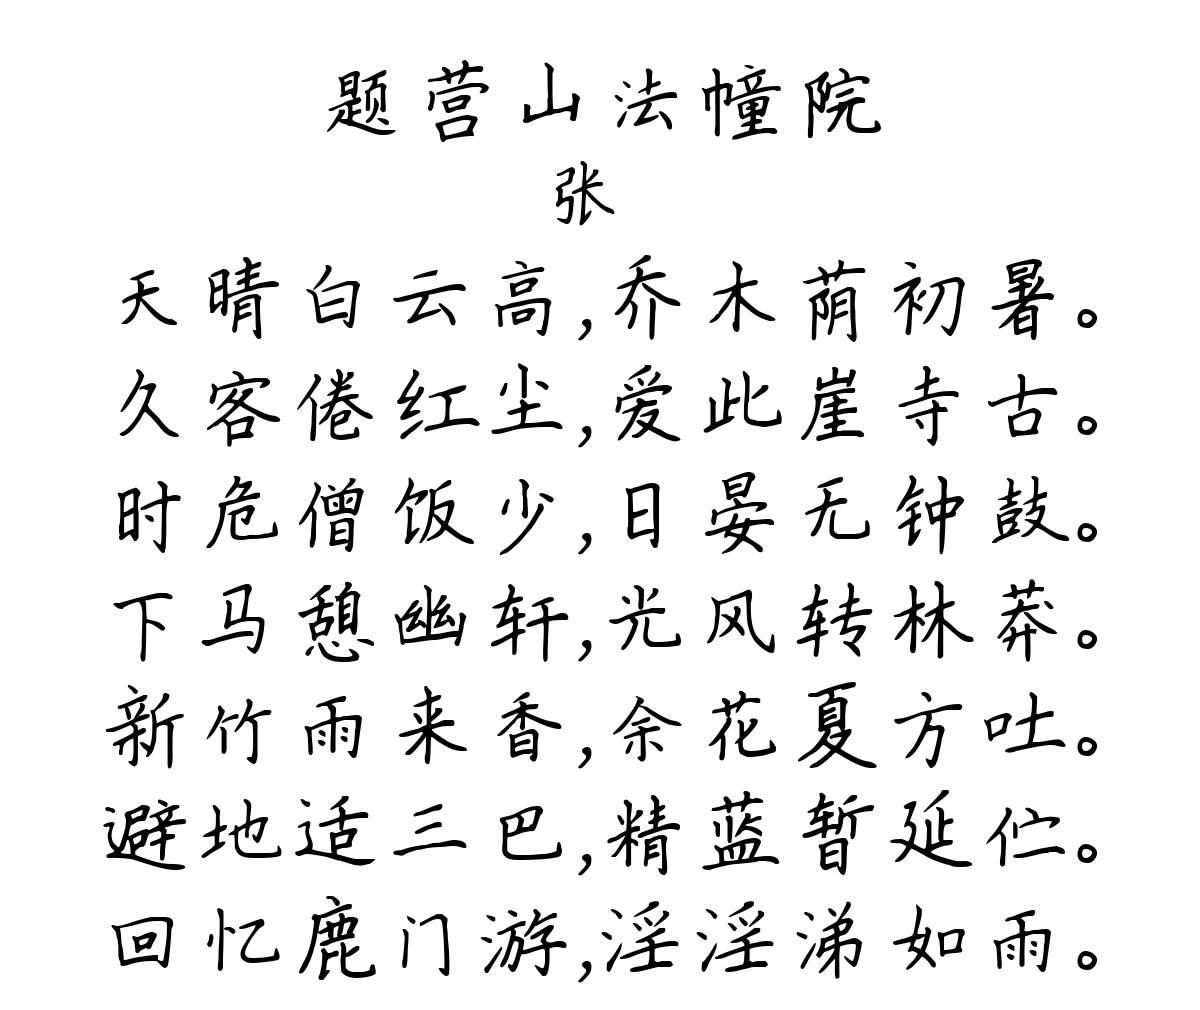 题营山法幢院
张
天晴白云高,乔木荫初暑。
久客倦红尘,爱此崖寺古。
时危僧饭少,日晏无钟鼓。
下马憩幽轩,光风转林莽。
新竹雨来香,余花夏方吐。
避地适三巴,精蓝暂延伫。
回忆鹿门游,淫淫涕如雨。